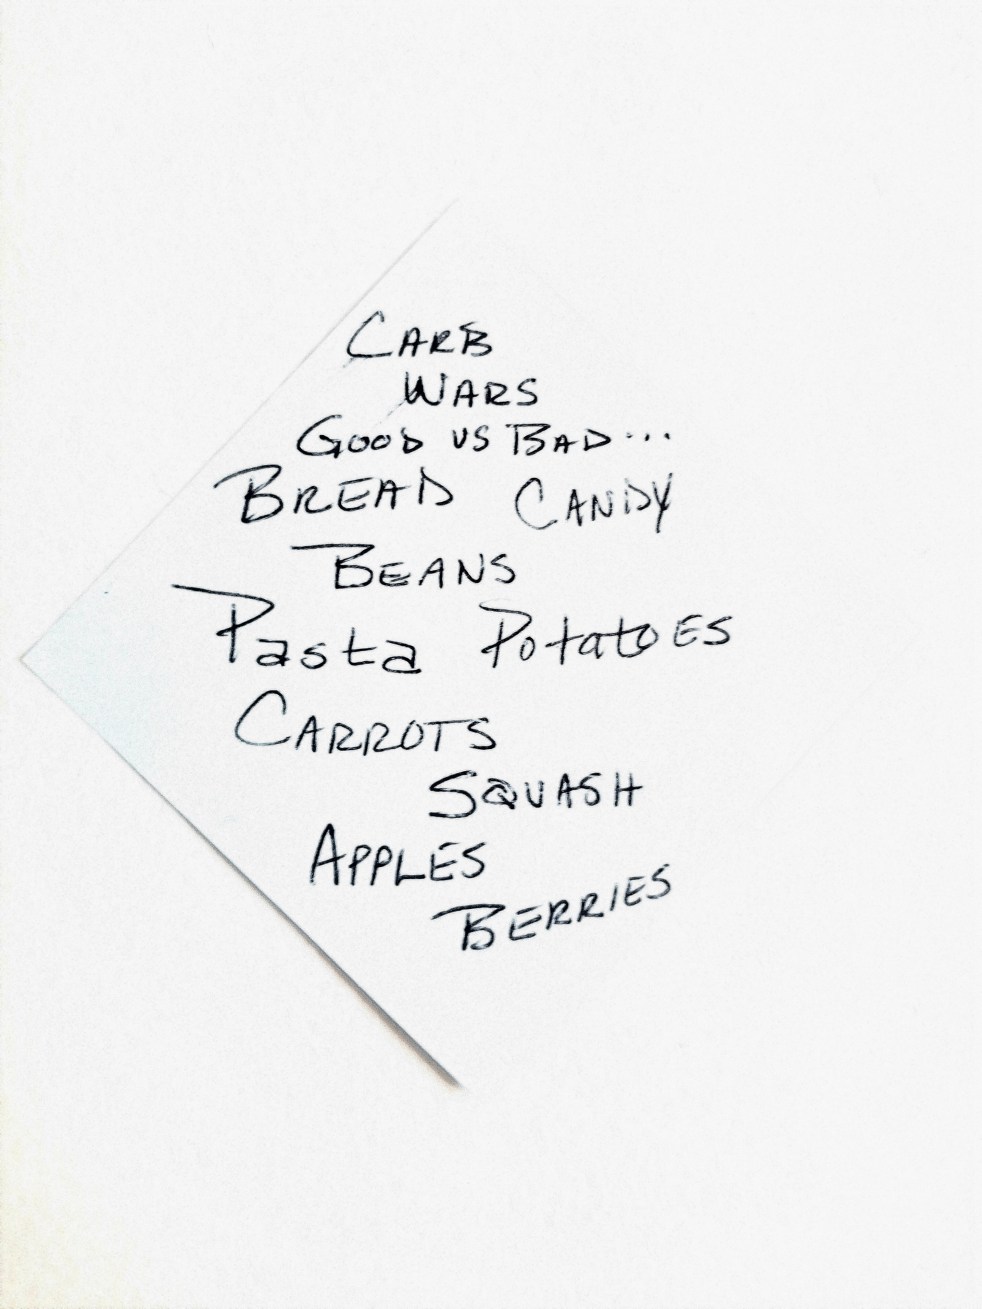 CARB
WARS
GOOD VS BAD...
BREAD CANDY
BEANS
Pasta PotatoES
CARROTS
SQUASH
APPLES
BERRIES